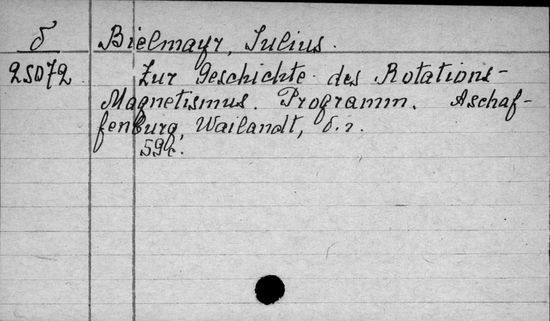 б Bielmayr, Julius.
25072 Zur Geschichte des Rotations-
Magnetismus. Programm. Aschaf-
fenburg, Wailandt, б.г.
59 с.